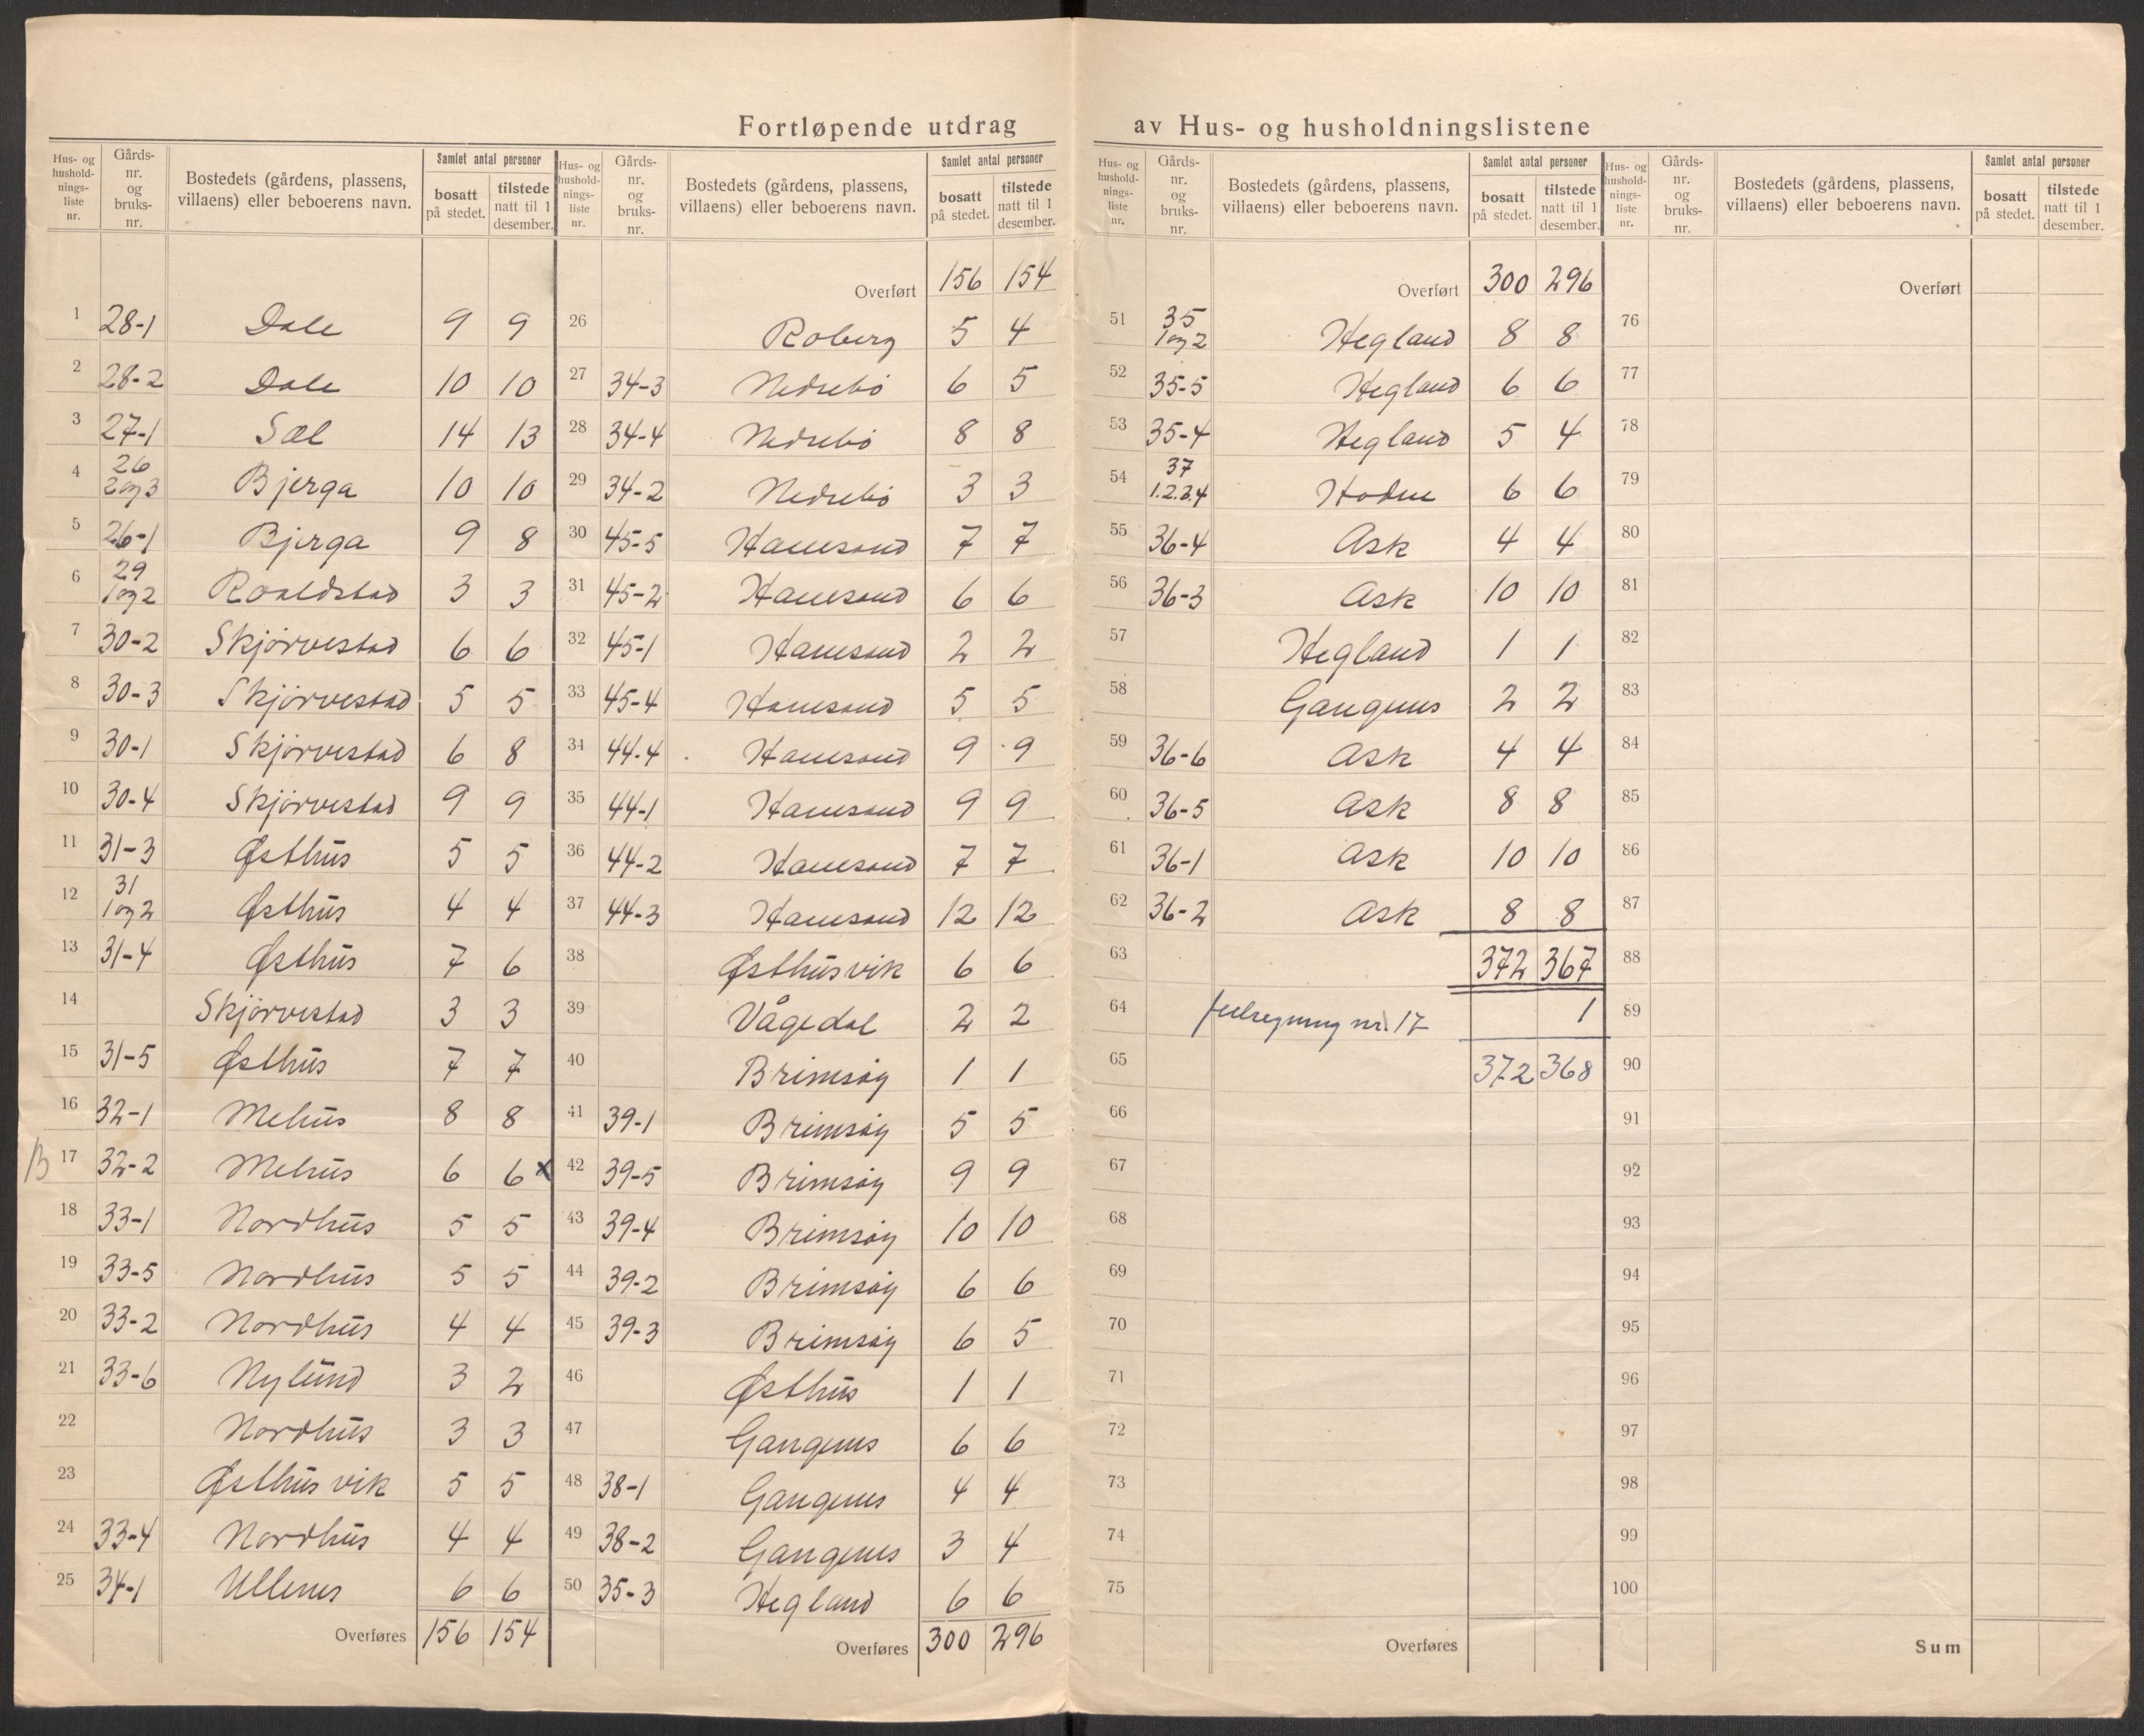 Fortløpende utdrag av Hus- og husholdningslistene
Hus- og hushold-nings-liste nr. | Gårds-nr. og bruks-nr. | Bostedets (gårdens, plassens, villaens) eller beboerens navn. | Samlet antal personer bosatt på stedet. | tilstede natt til 1 desember.
1 28-1 Dale 9 9
2 28-2 Dale 10 10
3 27-1 Sæl 14 13
4 26 2og3 Bjerga 10 10
5 26-1 Bjerga 9 8
6 29 1og2 Roaldstad 3 3
7 30-2 Skjörvestad 6 6
8 30-3 Skjörvestad 5 5
9 30-1 Skjörvestad 6 8
10 30-4 Skjörvestad 9 9
11 31-3 Østhus 5 5
12 31 1og2 Østhus 4 4
13 31-4 Østhus 7 6
14 Skjörvestad 3 3
15 31-5 Østhus 7 7
16 32-1 Mehus 8 8
B 17 32-2 Mehus 6 6 x
18 33-1 Nordhus 5 5
19 33-5 Nordhus 5 5
20 33-2 Nordhus 4 4
21 33-6 Nylund 3 2
22 Nordhus 3 3
23 Østhusvik 5 5
24 33-4 Nordhus 4 4
25 34-1 Ullenes 6 6
Overføres 156 154
Hus- og hushold-nings-liste nr. | Gårds-nr. og bruks-nr. | Bostedets (gårdens, plassens, villaens) eller beboerens navn. | Samlet antal personer bosatt på stedet. | tilstede natt til 1 desember.
Overført 156 154
26 Roberg 5 4
27 34-3 Nedrebö 6 5
28 34-4 Nedrebö 8 8
29 34-2 Nedrebö 3 3
30 45-5 Hanesand 7 7
31 45-2 Hanesand 6 6
32 45-1 Hanesand 2 2
33 45-4 Hanesand 5 5
34 44-4 Hanesand 9 9
35 44-1 Hanesand 9 9
36 44-2 Hanesand 7 7
37 44-3 Hanesand 12 12
38 Østhusvik 6 6
39 Vågedal 2 2
40 Brimsöy 1 1
41 39-1 Brimsöy 5 5
42 39-5 Brimsöy 9 9
43 39-4 Brimsöy 10 10
44 39-2 Brimsöy 6 6
45 39-3 Brimsöy 6 5
46 Østhus 1 1
47 Gangenes 6 6
48 38-1 Gangenes 4 4
49 38-2 Gangenes 3 4
50 35-3 Hegland 6 6
Overføres 300 296
Hus- og hushold-nings-liste nr. | Gårds-nr. og bruks-nr. | Bostedets (gårdens, plassens, villaens) eller beboerens navn. | Samlet antal personer bosatt på stedet. | tilstede natt til 1 desember.
Overført 300 296
51 35 1og2 Hegland 8 8
52 35-5 Hegland 6 6
53 35-4 Hegland 5 4
54 37 1.2.3.4 Hodne 6 6
55 36-4 Ask 4 4
56 36-3 Ask 10 10
57 Hegland 1 1
58 Gangenes 2 2
59 36-6 Ask 4 4
60 36-5 Ask 8 8
61 36-1 Ask 10 10
62 36-2 Ask 8 8
63 372 367
64 feilregning nr. 17 1
65 372 368
66
67
68
69
70
71
72
73
74
75
Overføres
Hus- og hushold-nings-liste nr. | Gårds-nr. og bruks-nr. | Bostedets (gårdens, plassens, villaens) eller beboerens navn. | Samlet antal personer bosatt på stedet. | tilstede natt til 1 desember.
Overført
76
77
78
79
80
81
82
83
84
85
86
87
88
89
90
91
92
93
94
95
96
97
98
99
100
Sum